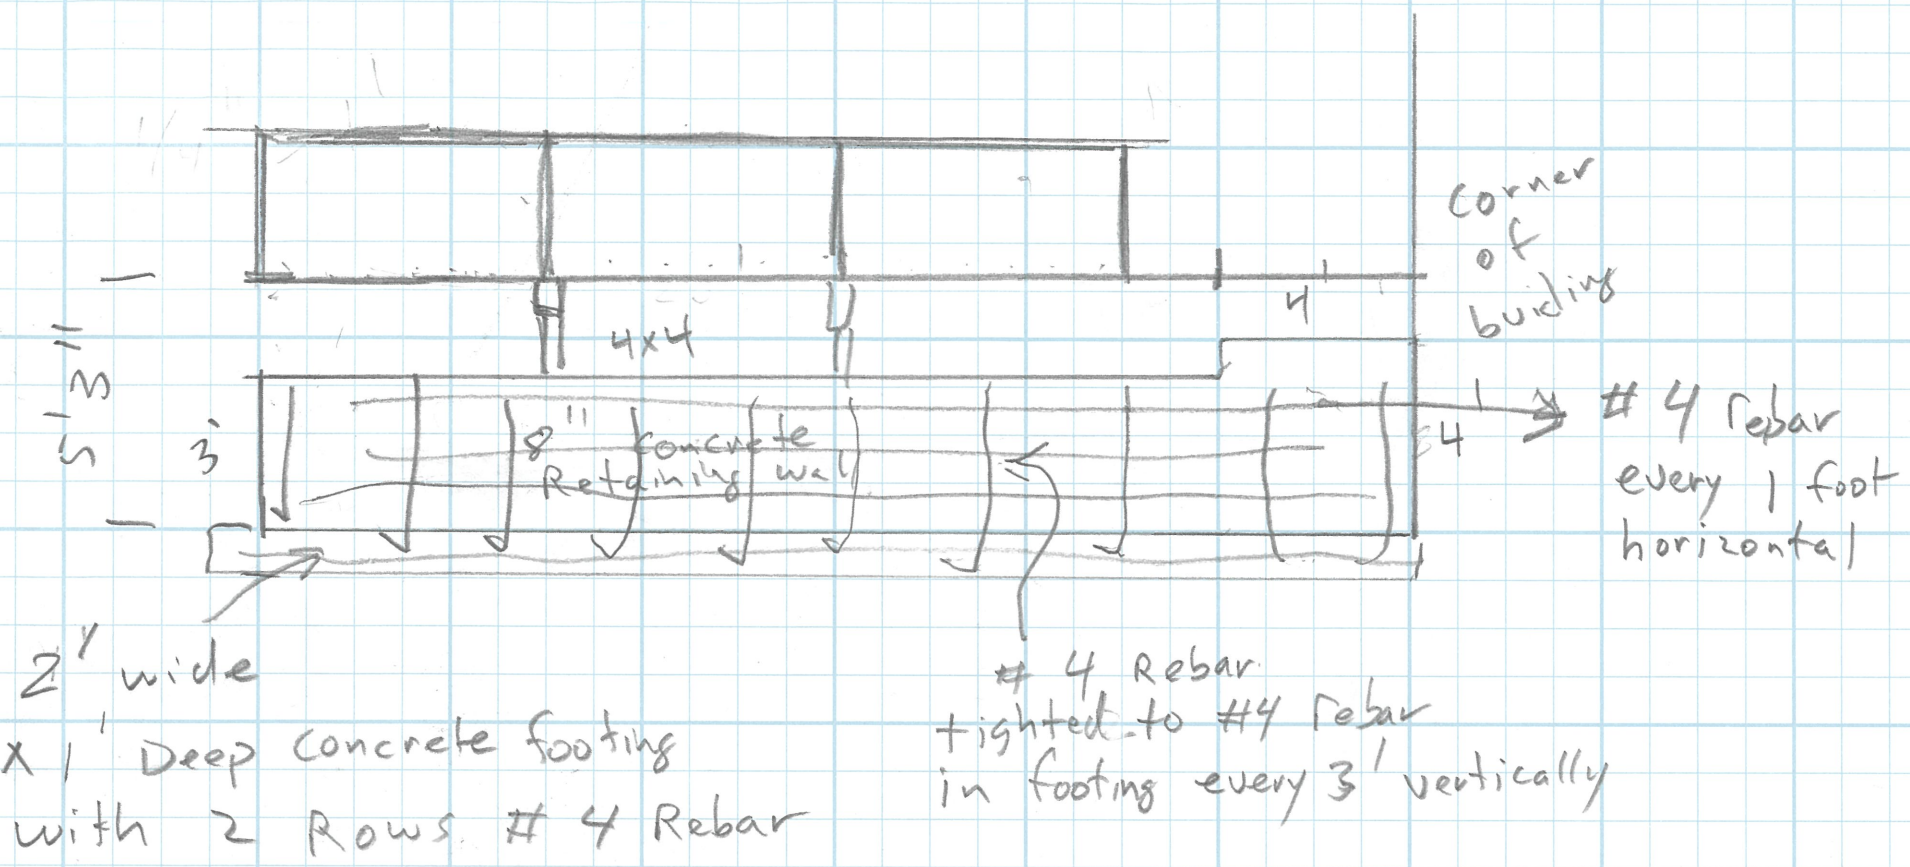 corner
of
buiding
4
4x4
5' 3"
3'
8" concrete
Retaining wall
4'
# 4 rebar
every 1 foot
horizontal
2' wide
x 1' Deep concrete footing
with 2 Rows # 4 Rebar
# 4 Rebar
tighted to #4 rebar
in footing every 3' vertically